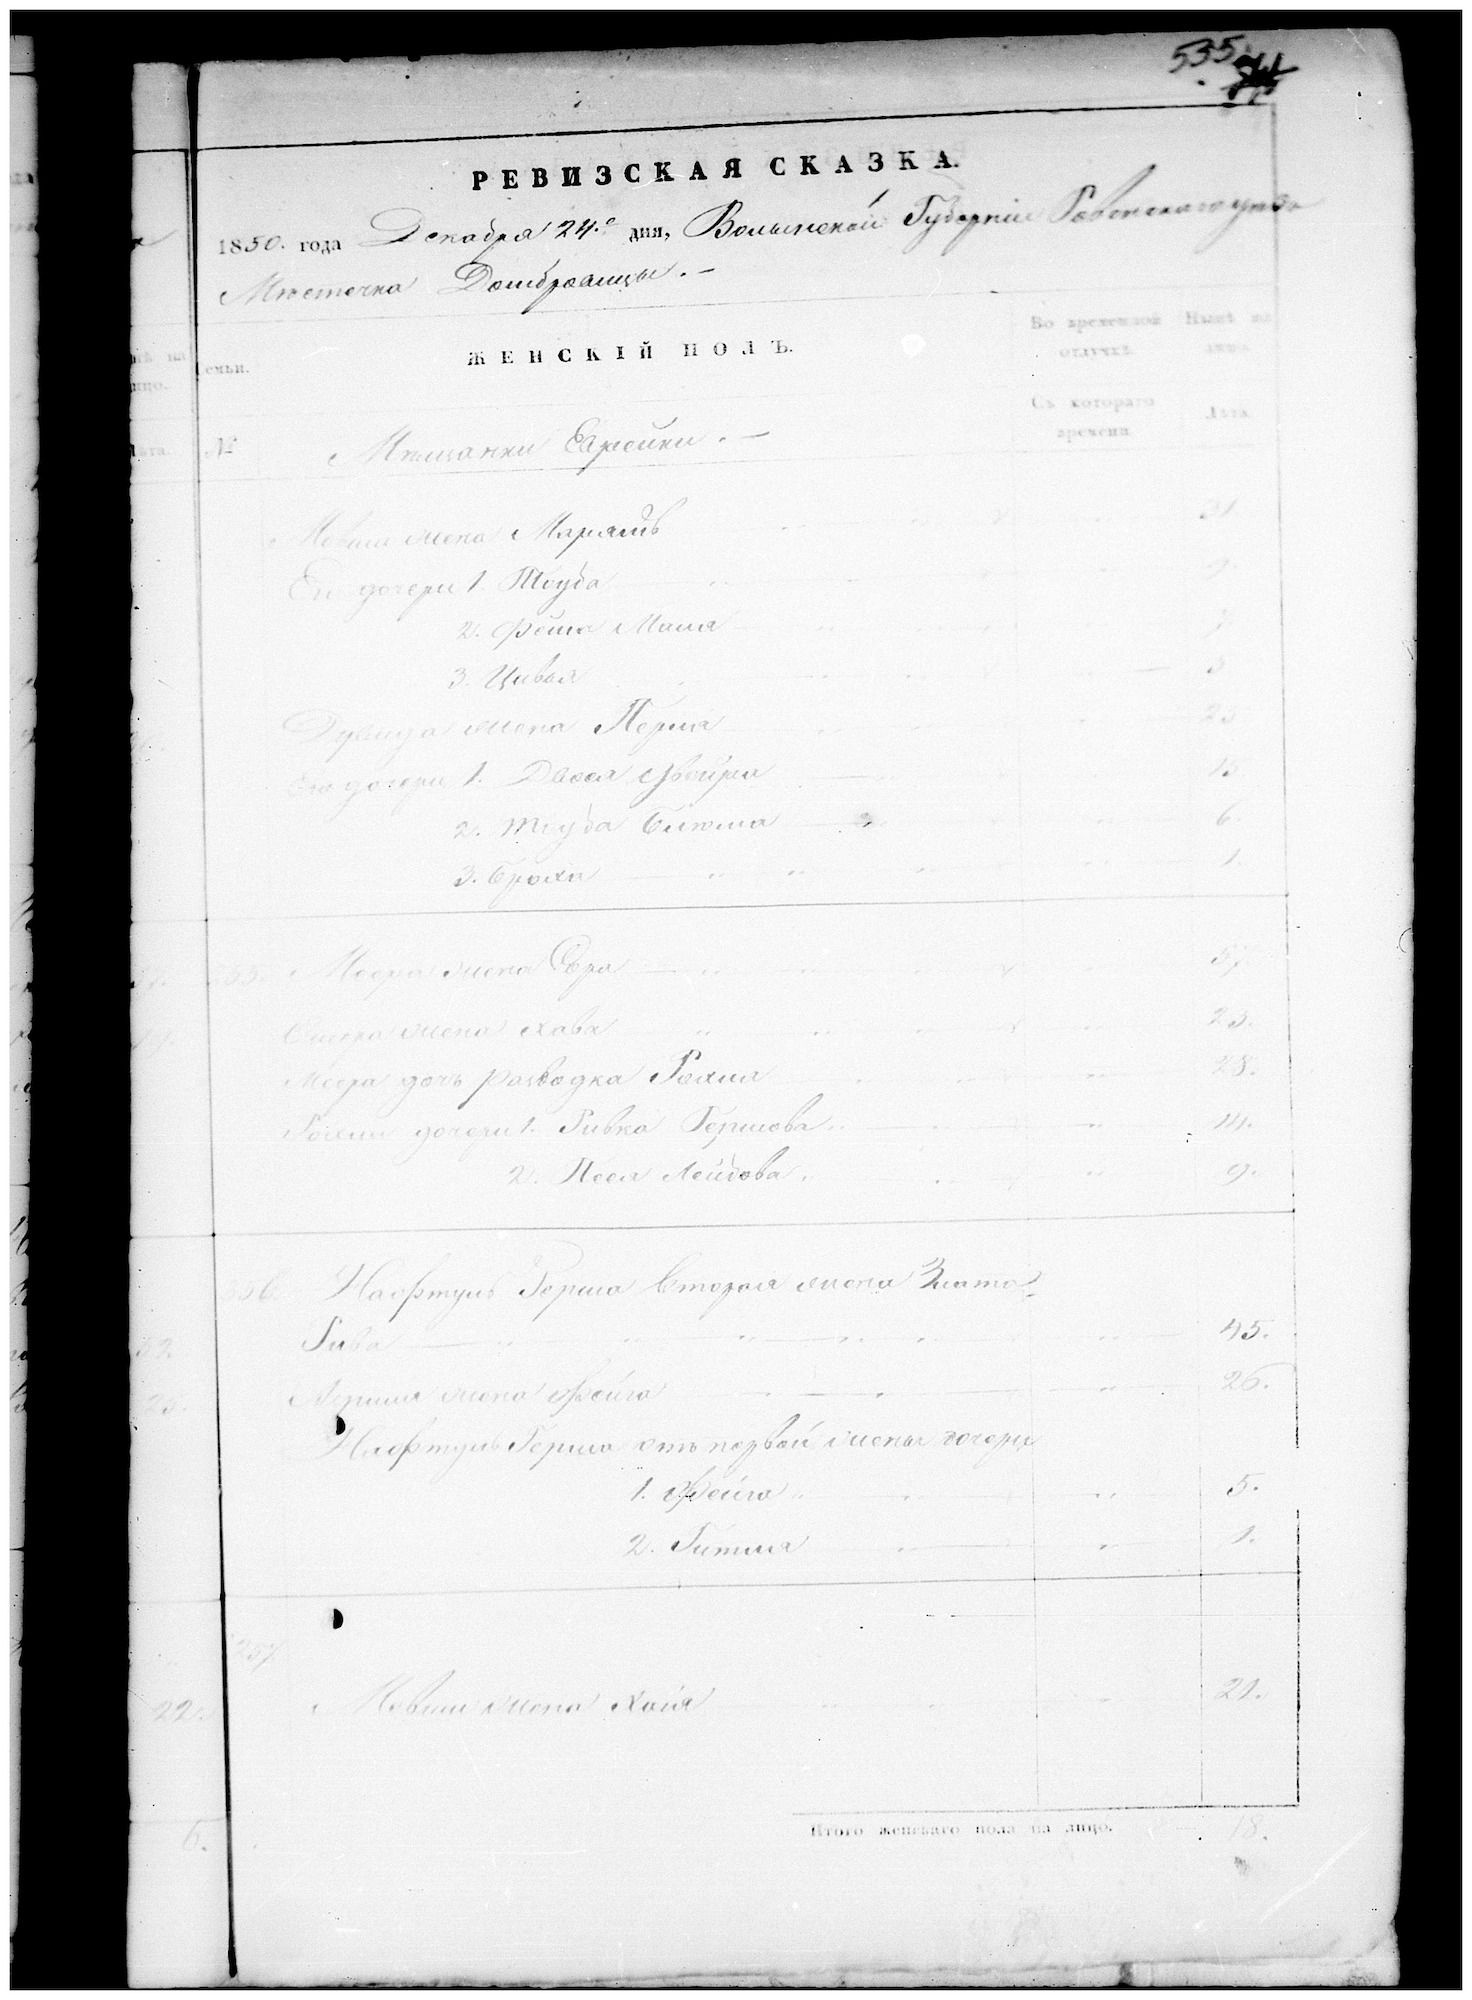 535.
РЕВИЗСКАЯ СКАЗКА.
1850. года Декабря 24.го дня, Волынской Губерніи Ровенскаго уезда
Местечка Домбровицы. –
Нынѣ на
лицо.
Семьи.
ЖЕНСКІЙ ПОЛЪ.
Во временной
отлучкѣ.
Нынѣ на
лицо.
Съ котораго
времени
Лѣта.
Лѣта.
№
Мѣщанки Еврейки. –
Мовши жена Марямъ 31
Его дочери 1. Тоуба 9.
2. Фейга Маля 7
3. Цивья 3
жена Перля 23
Его дочери 1. Двося Фейга 13
2. Тоуба Блюма 6.
3. Броха 1.
255. Меера жена Сора 57.
жена Хава 23.
Меера дочь разводка Рохля 28.
Рохли дочери 1. Ривка Гершова 14.
2. Песя Лейбова 9.
56. Нафтуль Герша вторая жена Злата
Рива 45.
жена Фейга 26.
Нафтуль Герша отъ первой жены дочери
1. Фейга 5.
2. Гитля 1.
257
22. Мовши жена Хая 21.
Итого женскаго пола на лицо. 18.
6.